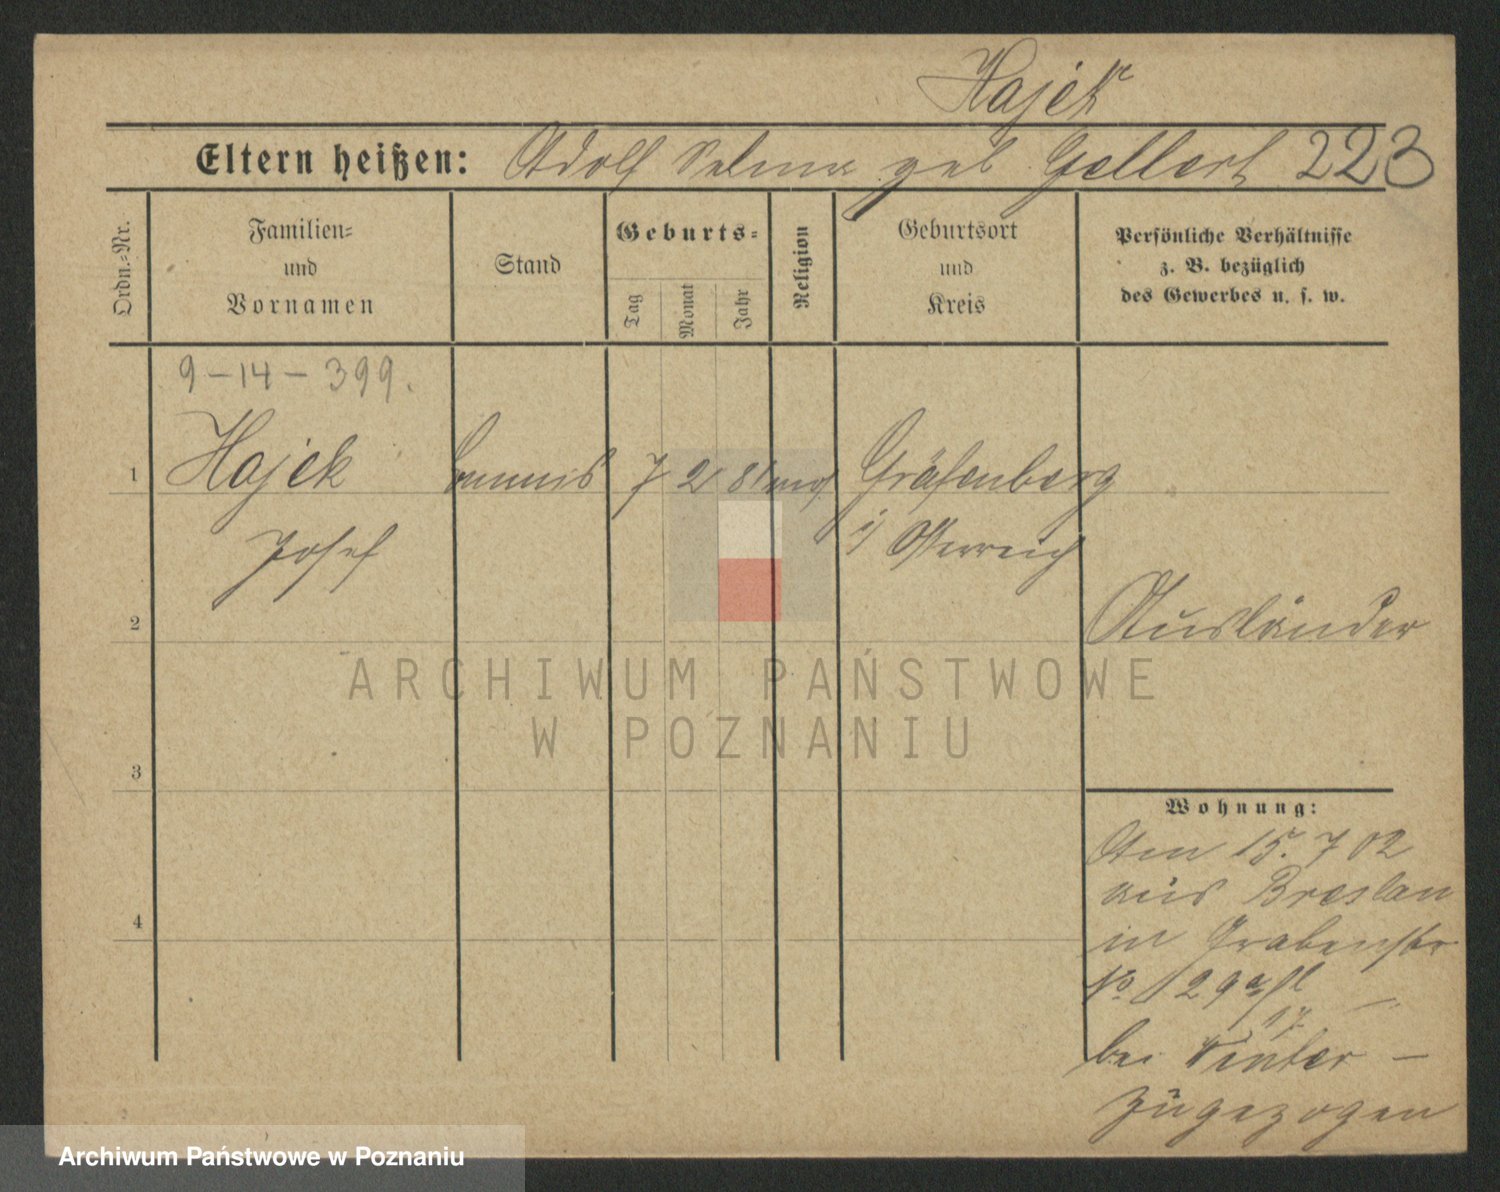 Hajek
Eltern heißen: Adolf Selma geb Gellert 223
Ordn.-Nr.
Familien-
und
Vornamen
Stand
Geburts-
Tag
Monat
Jahr
Religion
Geburtsort
und
Kreis
Persönliche Verhältnisse
z. B. bezüglich
des Gewerbes u. s. w.
9-14-399.
1 Hajek Commis 7 2 81 mos. Gräfenberg
Josef i/ Österreich
2 Ausländer
ARCHIWUM PAŃSTWOWE
W POZNANIU
3
Wohnung:
Am 15. 7 02
aus Breslau
4 in Grabenstr
No 29
bei Winter —
zugezogen
Archiwum Państwowe w Poznaniu